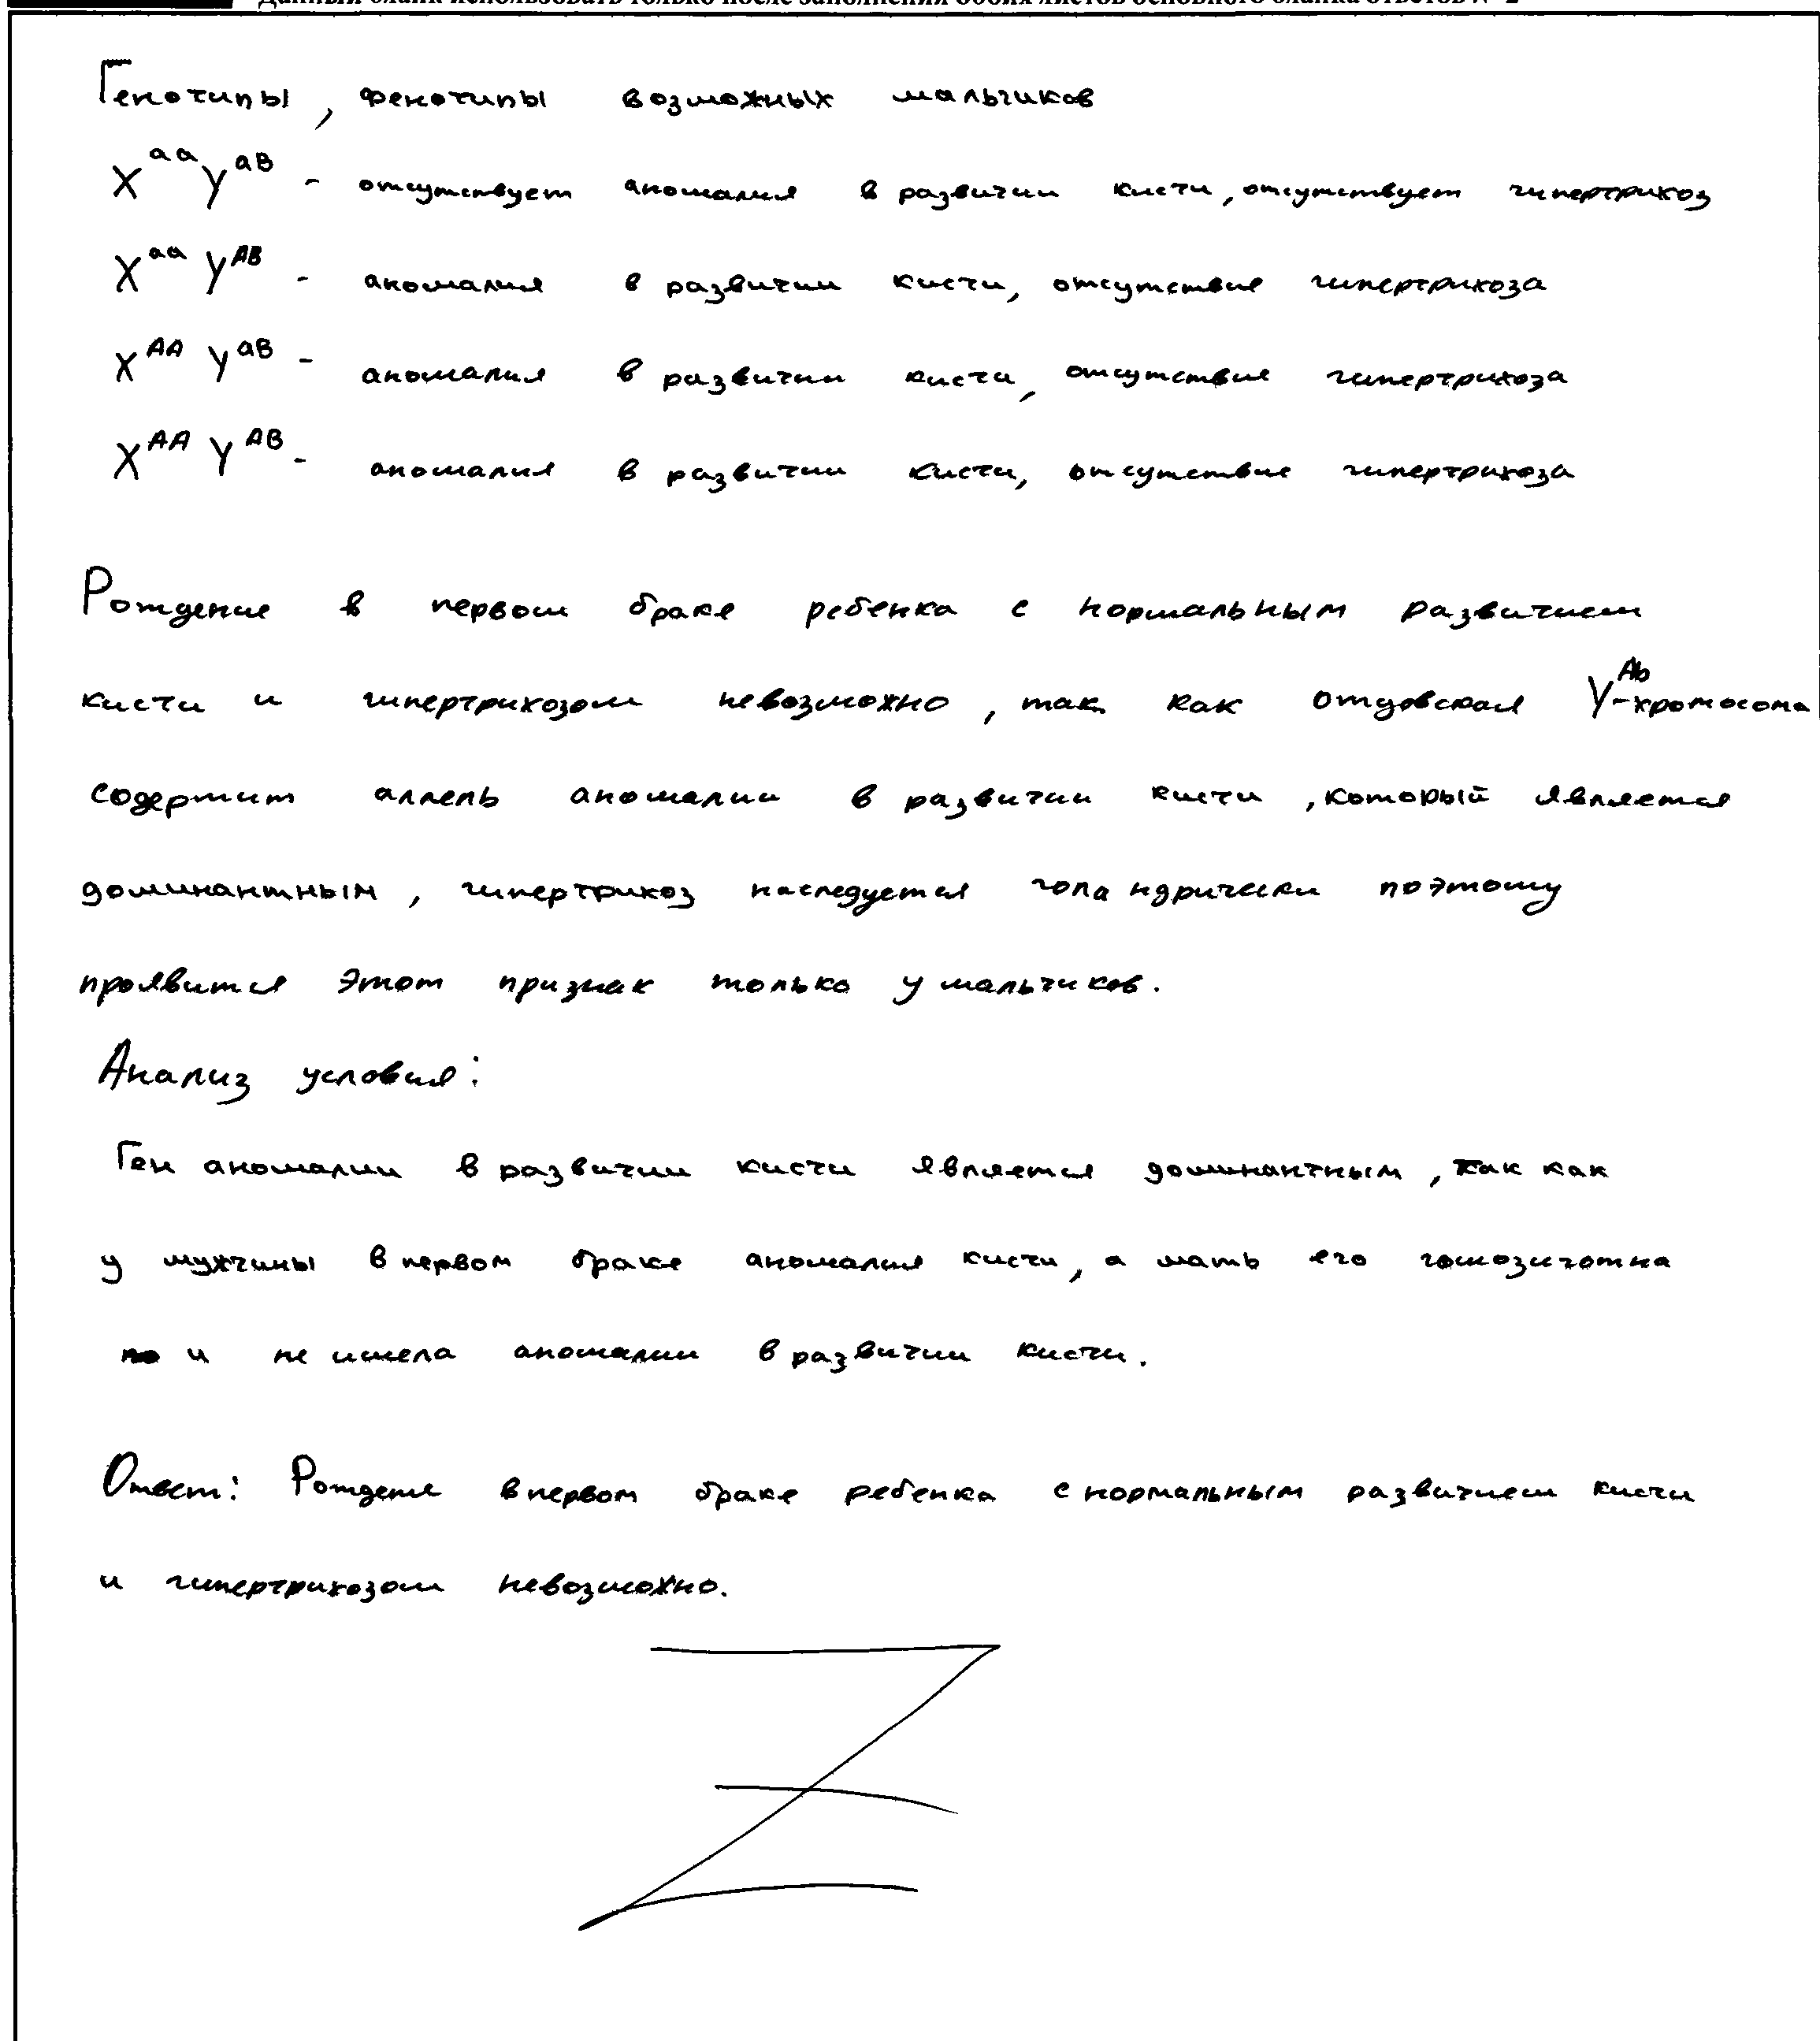 Данный бланк использовать только после заполнения обоих листов основного бланка ответов № 2
Генотипы, фенотипы возможных мальчиков
X^aa Y^aB - отсутствует аномалия в развитии кисти, отсутствует гипертрихоз
X^aa Y^AB - аномалия в развитии кисти, отсутствие гипертрихоза
X^AA Y^aB - аномалия в развитии кисти, отсутствие гипертрихоза
X^AA Y^AB - аномалия в развитии кисти, отсутствие гипертрихоза
Рождение в первом браке ребенка с нормальным развитием
кисти и гипертрихозом невозможно, так как отцовская Y^Ab-хромосома
содержит аллель аномалии в развитии кисти, который является
доминантным, гипертрихоз наследуется голандрически поэтому
проявится этот признак только у мальчиков.
Анализ условия:
Ген аномалии в развитии кисти является доминантным, так как
у мужчины в первом браке аномалия кисти, а мать его гомозиготна
и не имела аномалии в развитии кисти.
Ответ: Рождение в первом браке ребенка с нормальным развитием кисти
и гипертрихозом невозможно.